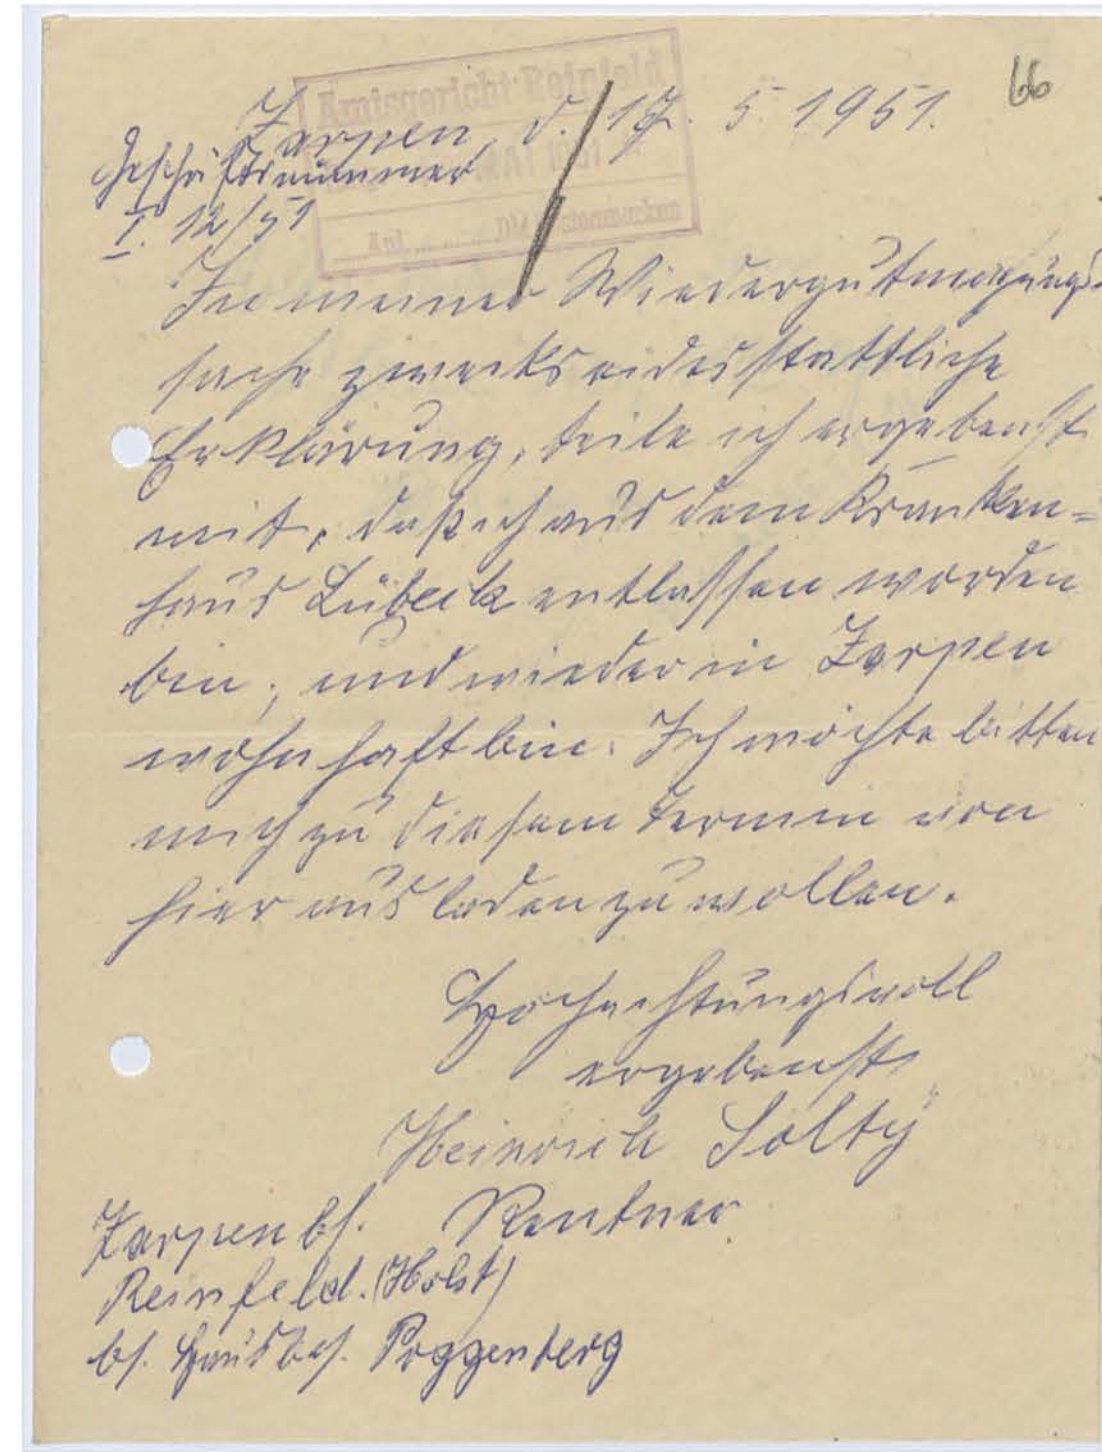 66
Amtsgericht Reinfeld
MAI 1951
Anl. DM Kostenmarken
Zarpen, d. 17. 5. 1951.
Geschäftsnummer
I. 12/51
In meiner Wiedergutmachungs-
sache zwecks eidesstattliche
Erklärung, teile ich ergebenst
mit, daß ich aus dem Kranken=
haus Lübeck entlassen worden
bin, und wieder in Zarpen
wohnhaft bin. Ich möchte bitten
mich zu diesem Termin von
hier aus laden zu wollen.
Hochachtungsvoll
ergebenst
Heinrich Solty
Rentner.
Zarpen bf.
Reinfeld. (Holst)
bf. Hausbes. Poggenberg